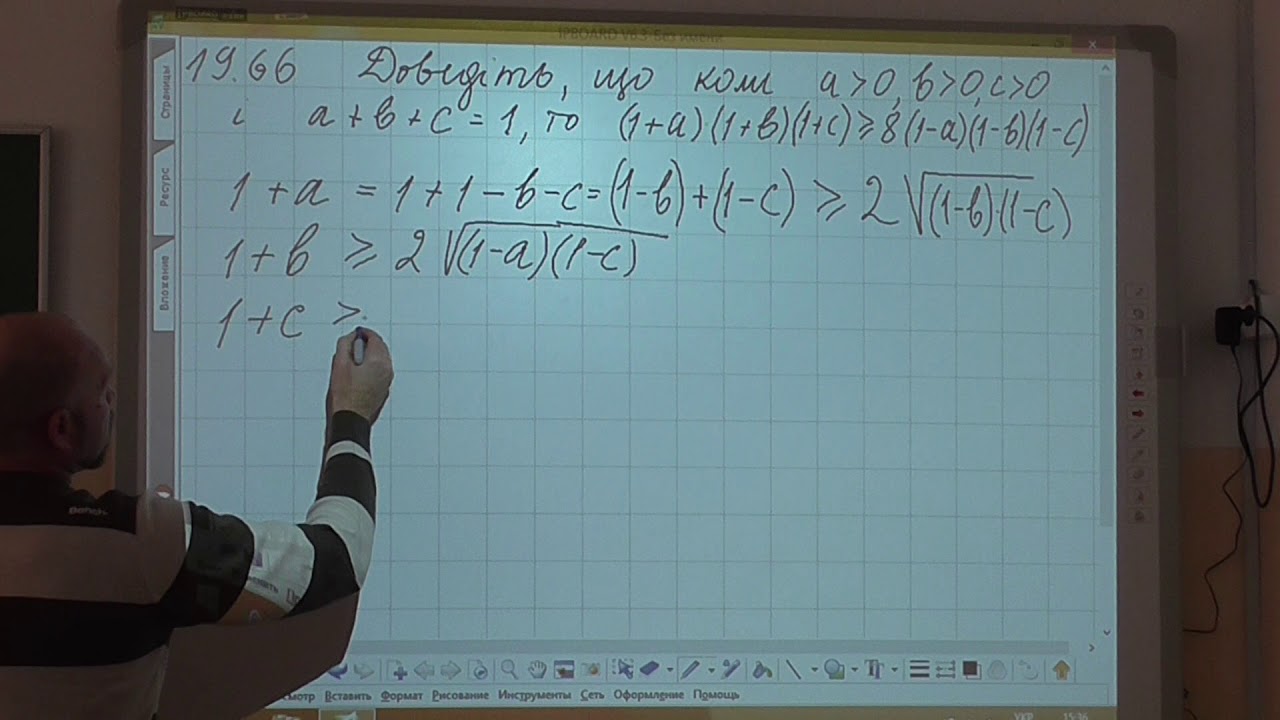 IPBOARD V8.3 Без имени
19.66 Доведіть, що коли a>0, b>0, c>0
і a+b+c=1, то (1+a)(1+b)(1+c)≥8(1-a)(1-b)(1-c)
1+a = 1+1-b-c=(1-b)+(1-c) ≥ 2√(1-b)·(1-c)
1+b ≥ 2√(1-a)(1-c)
1+c ≥
Страницы
Ресурс
Вложение
Bench
Вставить Формат Рисование Инструменты Сеть Оформление Помощь
УКР 15:36